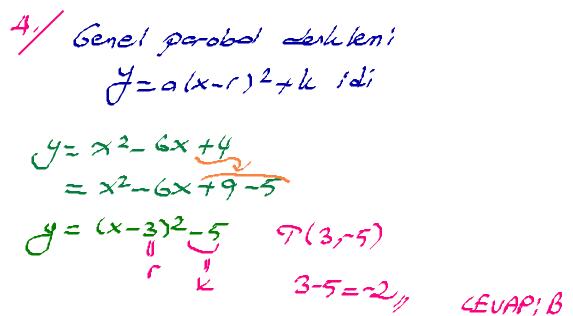 4./ Genel parabol denklemi
y = a(x-r)² + k idi
y = x² - 6x + 4
= x² - 6x + 9 - 5
y = (x-3)² - 5 T(3,-5)
r k 3-5 = -2 //
CEVAP: B